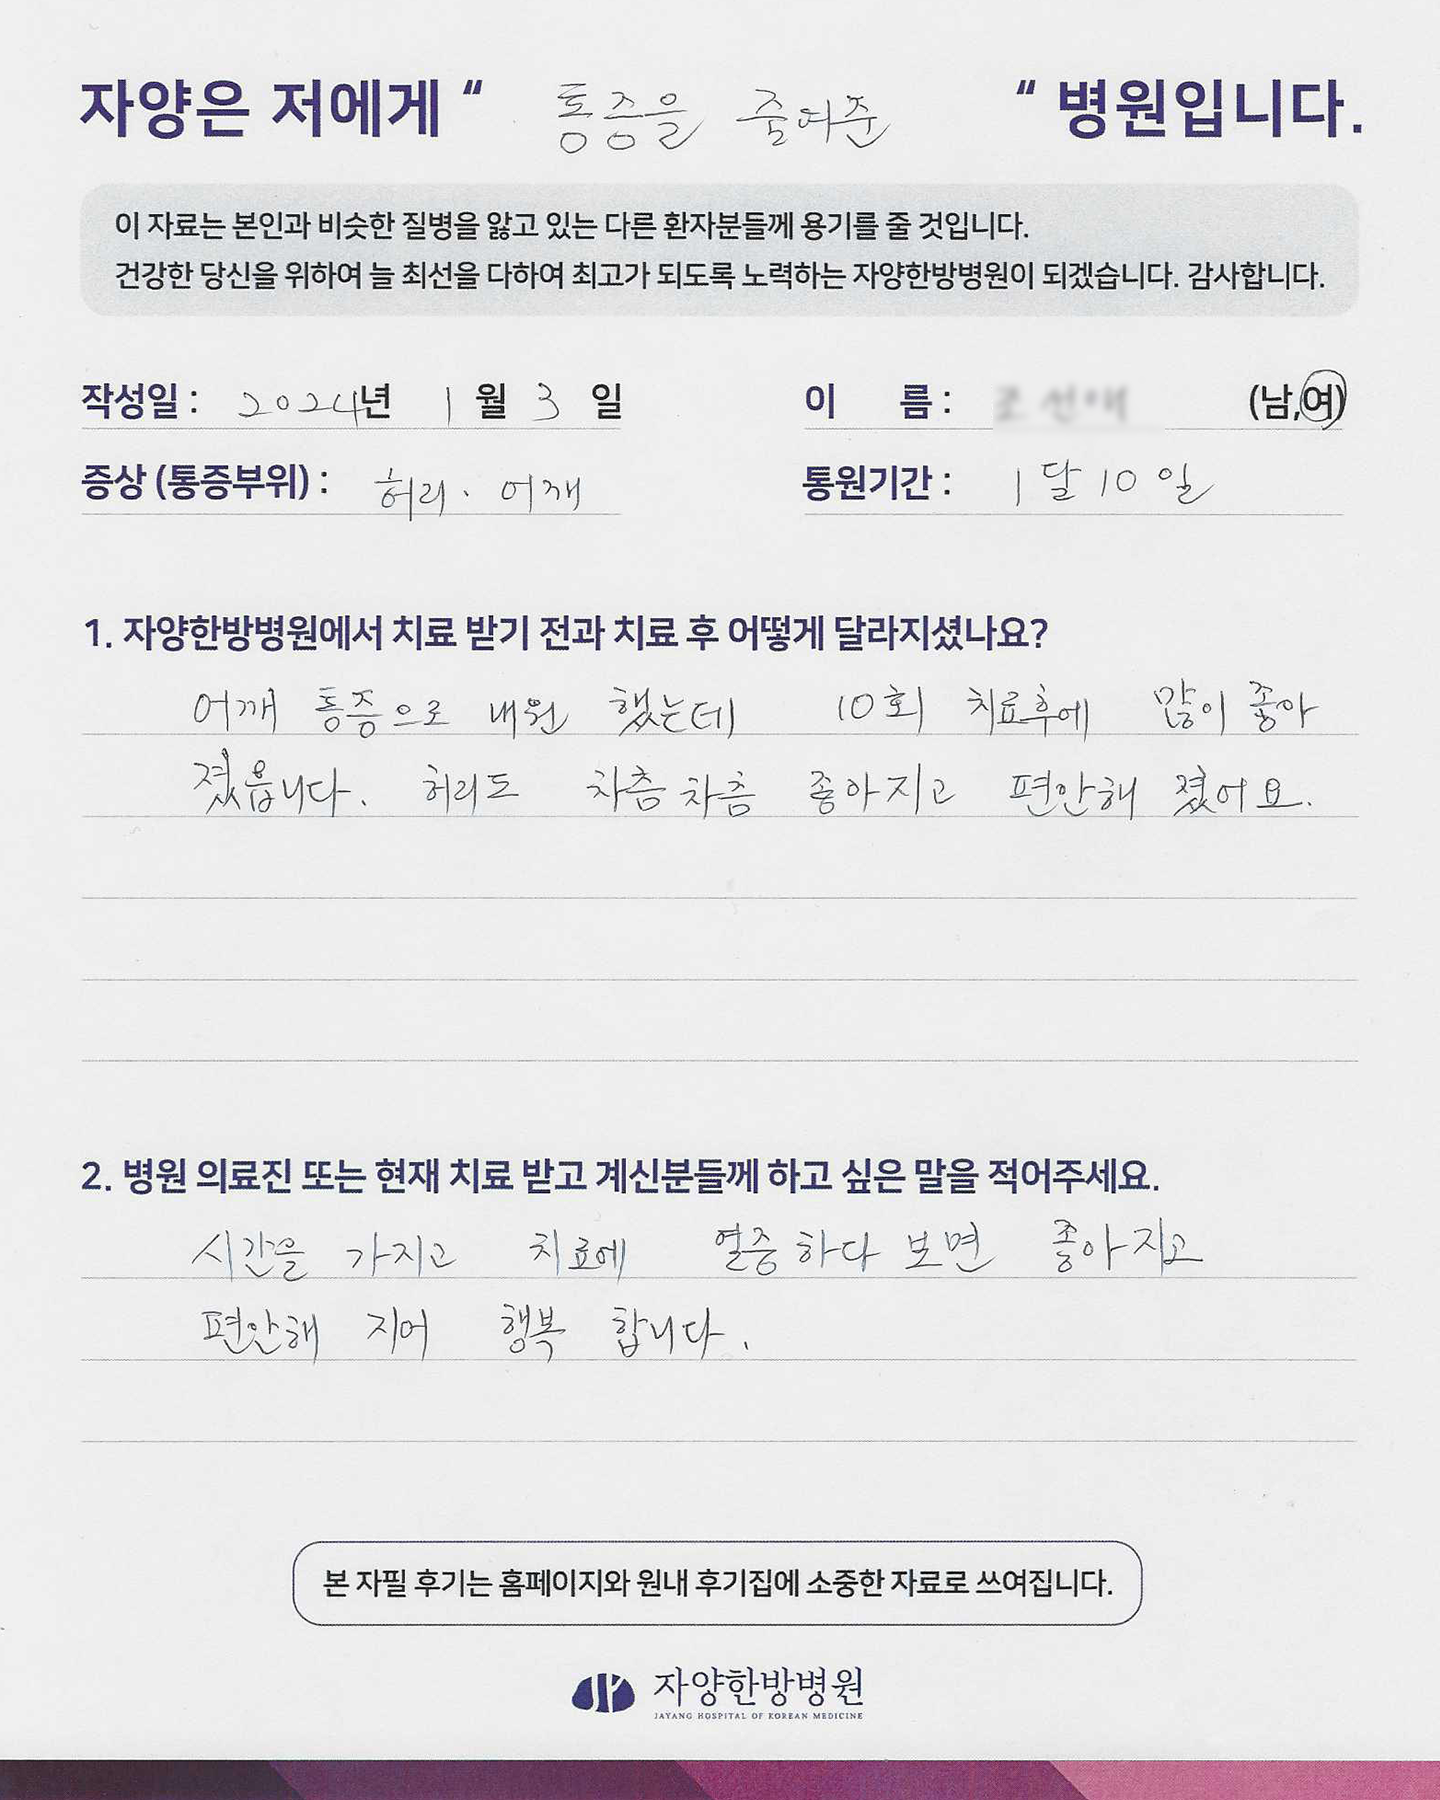 자양은 저에게 “ 통증을 줄여준 “ 병원입니다.
이 자료는 본인과 비슷한 질병을 앓고 있는 다른 환자분들께 용기를 줄 것입니다.
건강한 당신을 위하여 늘 최선을 다하여 최고가 되도록 노력하는 자양한방병원이 되겠습니다. 감사합니다.
작성일 : 2024년 1월 3일 이 름 : (남,여)
증상 (통증부위) : 허리. 어깨 통원기간 : 1달 10일
1. 자양한방병원에서 치료 받기 전과 치료 후 어떻게 달라지셨나요?
어깨 통증으로 내원 했는데 10회 치료후에 많이 좋아
졌읍니다. 허리도 차츰차츰 좋아지고 편안해 졌어요.
2. 병원 의료진 또는 현재 치료 받고 계신분들께 하고 싶은 말을 적어주세요.
시간을 가지고 치료에 열중하다 보면 좋아지고
편안해 지어 행복 합니다.
본 자필 후기는 홈페이지와 원내 후기집에 소중한 자료로 쓰여집니다.
자양한방병원
JAYANG HOSPITAL OF KOREAN MEDICINE